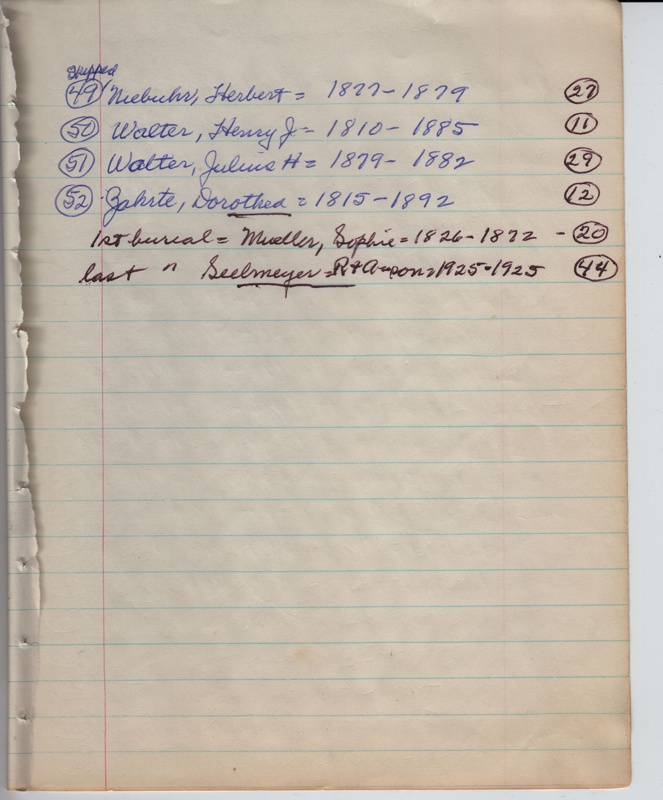 skipped
49 Niebuhr, Herbert = 1877-1879 27
50 Walter, Henry J = 1810-1885 11
51 Walter, Julius H = 1879-1882 29
52 Zahrte, Dorothea = 1815-1892 12
1st burial = Mueller, Sophie = 1826-1872 - 20
last " Seelmeyer = R & A = 1925-1925 44